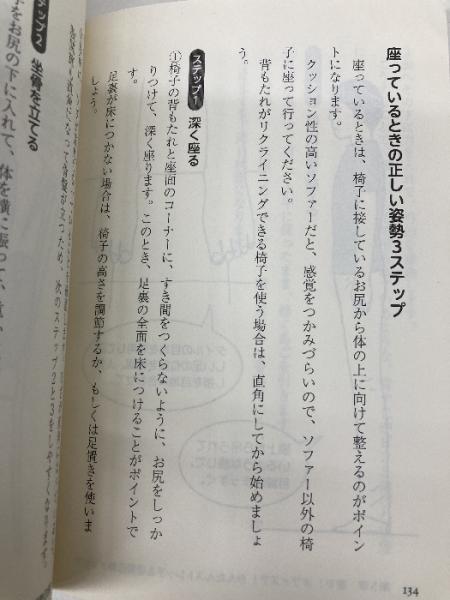 座っているときの正しい姿勢3ステップ
座っているときは、椅子に接しているお尻から体の上に向けて整えるのがポイン
トになります。
クッション性の高いソファーだと、感覚をつかみづらいので、ソファー以外の椅
子に座って行ってください。
背もたれがリクライニングできる椅子を使う場合は、直角にしてから始めましょ
う。
ステップ1 深く座る
①椅子の背もたれと座面のコーナーに、すき間をつくらないように、お尻をしっか
りつけて、深く座ります。このとき、足裏の全面を床につけることがポイントで
す。
足裏が床につかない場合は、椅子の高さを調節するか、もしくは足置きを使いま
しょう。
になって骨盤が立つため、次のステップ2と3をしやすくなります。
ステップ2 坐骨を立てる
をお尻の下に入れて、体を横に振って、
134